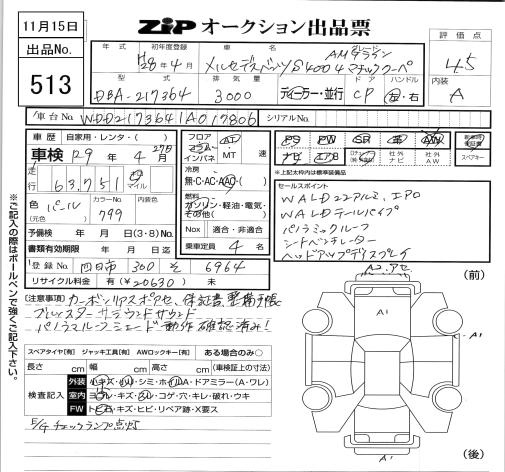 11月15日
ZIP オークション出品票
出品No.
513
年式 初年度登録 車名 グレード
H28年4月 メルセデスベンツ S400 4マチッククーペ
AMGライン
評価点
4.5
内装
A
型式 排気量 ドア ハンドル
DBA-217364 3000 ディーラー・並行 CP 左・右
車台No. WDD2173641A017806 シリアルNo.
車歴 自家用・レンタ・( )
車検 R9年4月27日
走行 63,751 km マイル
色 (元色) パール カラーNo. 799 内装色
予備検 年 月 日(3・8)No.
書類有効期限 年 月 日迄
登録No. 四日市 300 そ 6964
リサイクル料金 有(¥20630) 未
フロア コラム インパネ AT ・MT 速
冷房 無・C・AC・AAC・( )
燃料 ガソリン・軽油・電気・その他( )
Nox 適合・非適合
乗車定員 4 名
PS PW SR 革 AW
ナビ エアB 社外ナビ 社外AW
新車時保証書
スペアキー
※上記太枠内は標準装備品
セールスポイント
WALD22アルミ、エアロ
WALDテールパイプ
パノラミックルーフ
シートベンチレーター
ヘッドアップディスプレイ
(注意事項) カーボンリアスポ社外、保証書、整備手帳
ブルメスターサラウンドサウンド
パノラマルーフシェード動作確認済み!
スペアタイヤ[有] ジャッキ工具[有] AWロックキー[有] ある場合のみ○
長さ cm 幅 cm 高さ cm (車検証上の寸法)
検査記入
外装 小キズ・小凹・シミ・ホイルA・ドアミラー(A・ワレ)
室内 ヨゴレ・キズ・スレ・コゲ・穴・キレ・破れ・ウキ
FW トビ石・キズ・ヒビ・リペア跡・X要ス
E/Gチェックランプ点灯
A2.アセ
(前)
A1
A1
A1
(後)
※ご記入の際はボールペンで強くご記入下さい。